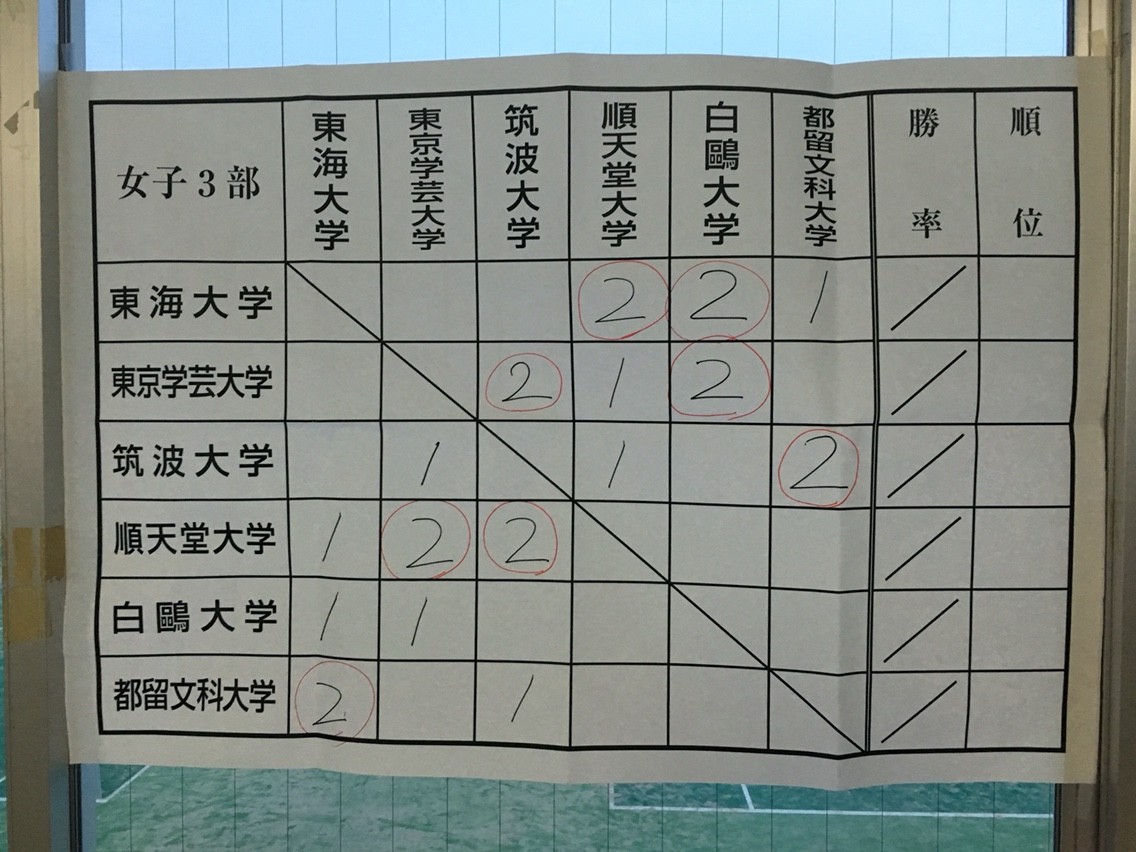 女子3部 東海大学 東京学芸大学 筑波大学 順天堂大学 白鷗大学 都留文科大学 勝率 順位
東海大学 2 2 1 /
東京学芸大学 2 1 2 /
筑波大学 1 1 2 /
順天堂大学 1 2 2 /
白鷗大学 1 1 /
都留文科大学 2 1 /